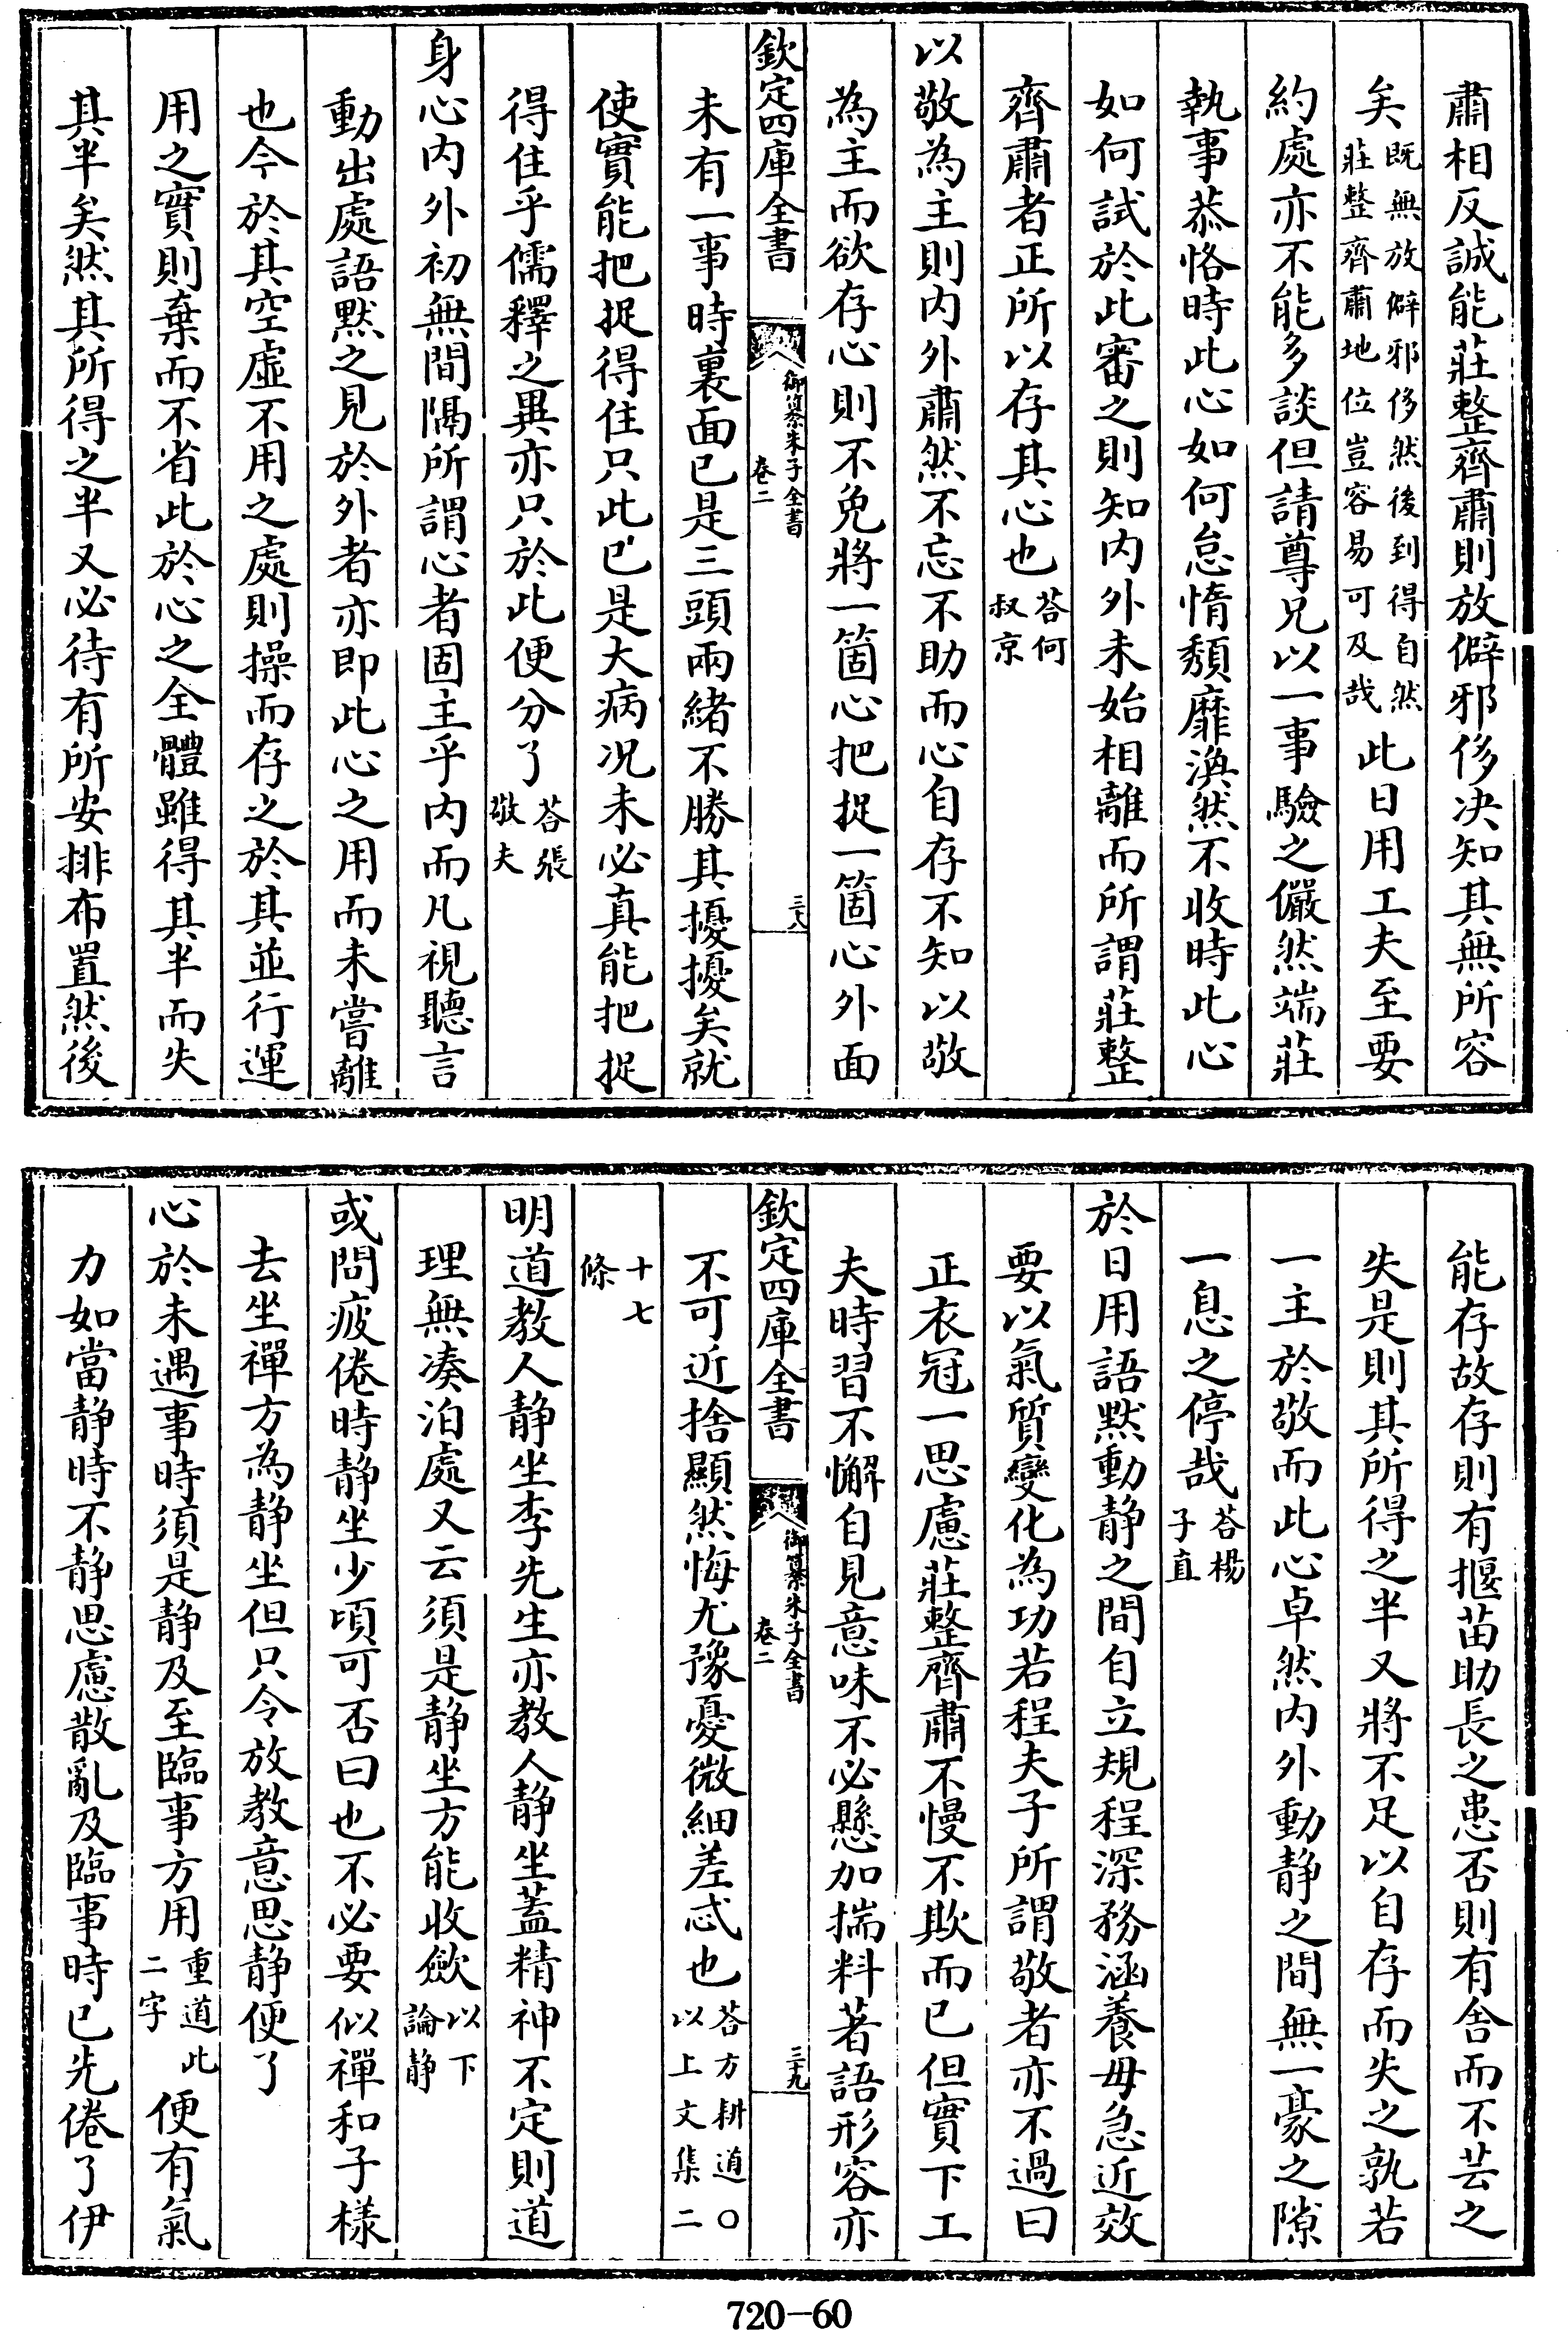 肅相反誠能莊整齊肅則放僻邪侈决知其無所容
矣既無放僻邪侈然後到得自然莊整齊肅地位豈容易可及哉此日用工夫至要
約處亦不能多談但請尊兄以一事驗之儼然端莊
執事恭恪時此心如何怠惰頽靡渙然不收時此心
如何試於此審之則知内外未始相離而所謂莊整
齊肅者正所以存其心也荅何叔京
以敬為主則内外肅然不忘不助而心自存不知以敬
為主而欲存心則不免將一箇心把捉一箇心外面
欽定四庫全書
御纂朱子全書
卷二
三八
未有一事時裏面已是三頭兩緒不勝其擾擾矣就
使實能把捉得住只此已是大病况未必真能把捉
得住乎儒釋之異亦只於此便分了荅張敬夫
身心内外初無間隔所謂心者固主乎内而凡視聽言
動出處語黙之見於外者亦即此心之用而未嘗離
也今於其空虚不用之處則操而存之於其並行運
用之實則棄而不省此於心之全體雖得其半而失
其半矣然其所得之半又必待有所安排布置然後
能存故存則有揠苗助長之患否則有舍而不芸之
失是則其所得之半又將不足以自存而失之孰若
一主於敬而此心卓然内外動静之間無一豪之隙
一息之停哉荅楊子直
於日用語黙動静之間自立規程深務涵養毋急近效
要以氣質變化為功若程夫子所謂敬者亦不過曰
正衣冠一思慮莊整齊肅不慢不欺而已但實下工
夫時習不懈自見意味不必懸加揣料著語形容亦
欽定四庫全書
御纂朱子全書
卷二
三九
不可近捨顯然悔尤豫憂微細差忒也荅方耕道○以上文集二
十七條
明道教人静坐李先生亦教人静坐蓋精神不定則道
理無凑泊處又云須是静坐方能收歛以下論静
或問疲倦時静坐少頃可否曰也不必要似禪和子様
去坐禪方為静坐但只令放教意思静便了
心於未遇事時須是静及至臨事方用重道此二字便有氣
力如當静時不静思慮散亂及臨事時已先倦了伊
720-60